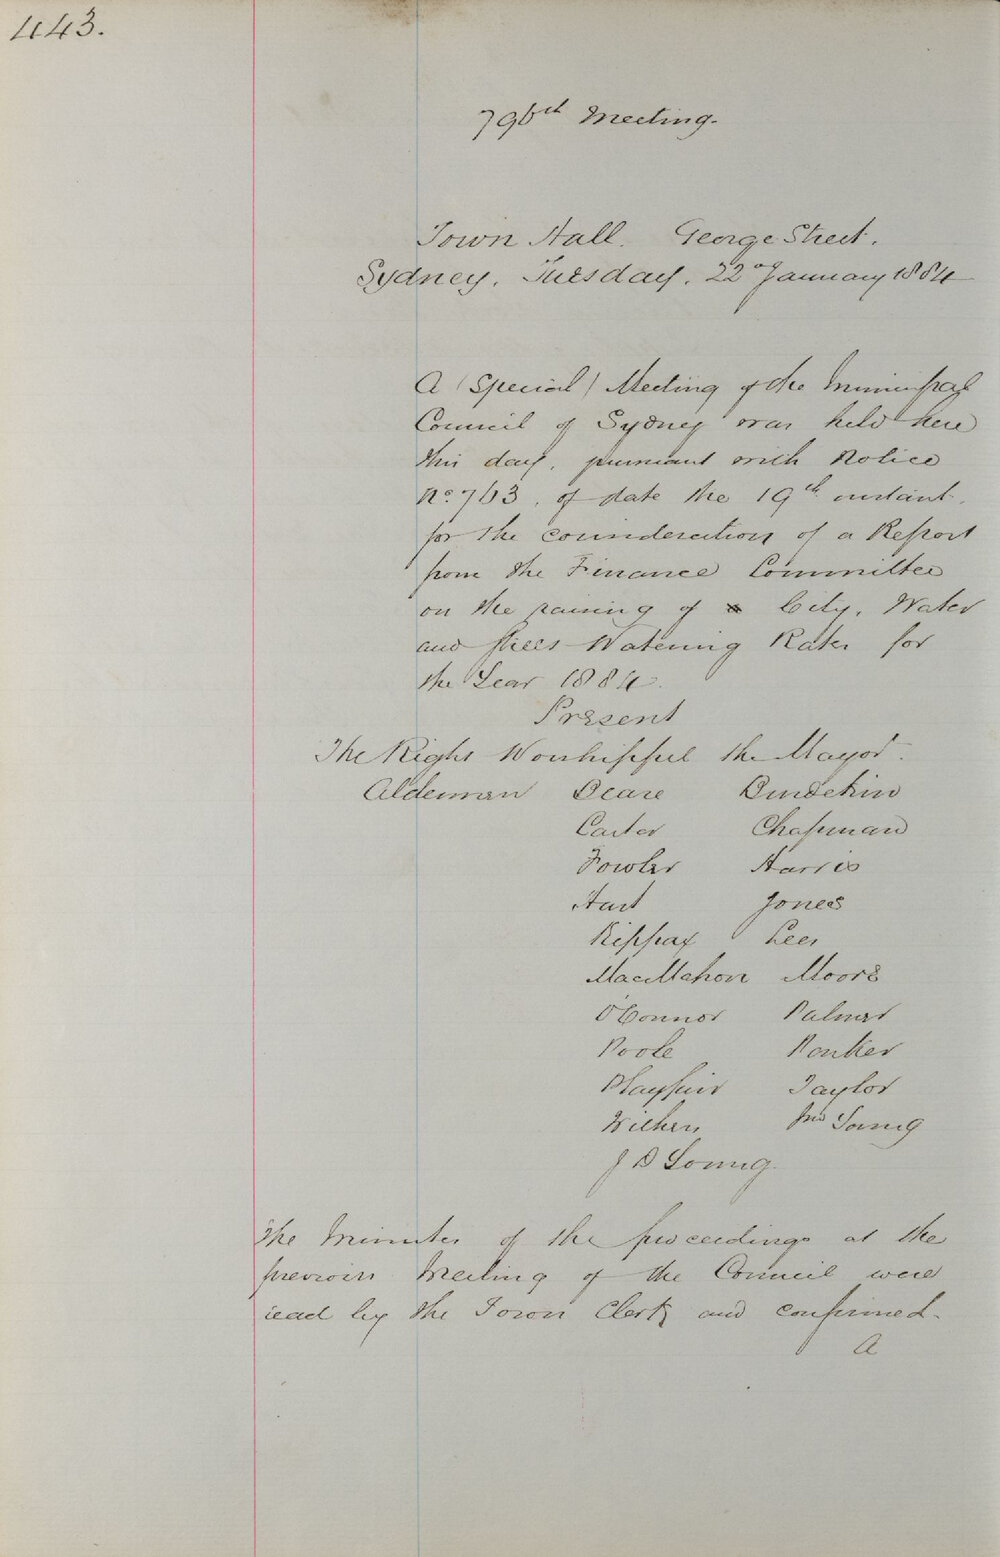 443.
796th Meeting.
Town Hall. George Street.
Sydney, Tuesday, 22d January 1884
A (Special) Meeting of the Municipal
Council of Sydney was held here
this day, pursuant with Notice
No. 763, of date the 19th instant,
for the consideration of a Report
from the Finance Committee
on the raising of City, Water
and Street Watering Rates for
the Year 1884.
Present
The Right Worshipful the Mayor.
Aldermen Beare Burdekin
Carter Chapman
Fowler Harris
Hart Jones
Kippax Lees
MacMahon Moore
O'Connor Palmer
Poole Penker
Playfair Taylor
Withers Jno Young
J D Young.
The Minutes of the proceedings at the
previous Meeting of the Council were
read by the Town Clerk and confirmed.
A